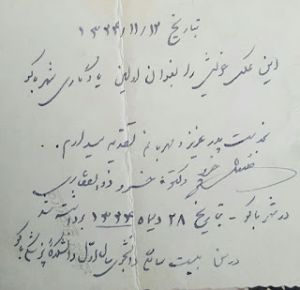 بتاریخ ۱۳۴۴/۱۱/۱۲
این عکس خویش را بعنوان اولین یادگاری شهر باکو
بخدمت پدر عزیز و مهربانم تقدیم میدارم ..
دکتر خسرو ذوالفقاری
در شهر باکو - بتاریخ ۲۸ دیماه ۱۳۴۴ برداشته شد
در سن بیست سالگی دانشجوی سال اول دانشکده پزشکی باکو